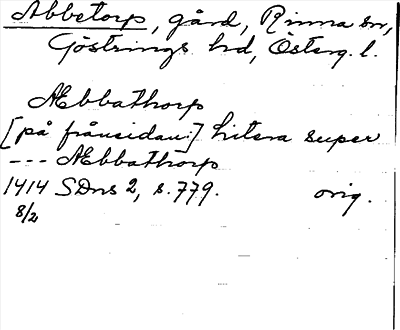 Abbetorp, gård, Rinna sn,
Göstrings hd, Österg. l.
Æbbathorp
[på frånsidan:] litera super
--- Æbbathorp
1414 SDns 2, s. 779. orig.
8/2